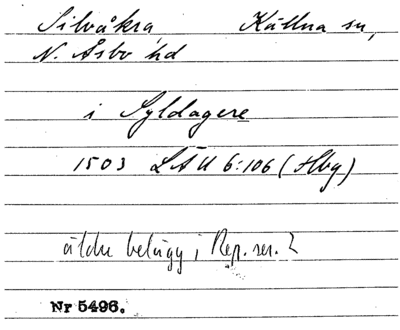 Silvåkra Källna sn,
N. Åsbo hd
i Syldagere
1503 LÄU 6:106 (Hbg)
äldre belägg i Rep. ser. ?
Nr 5496.